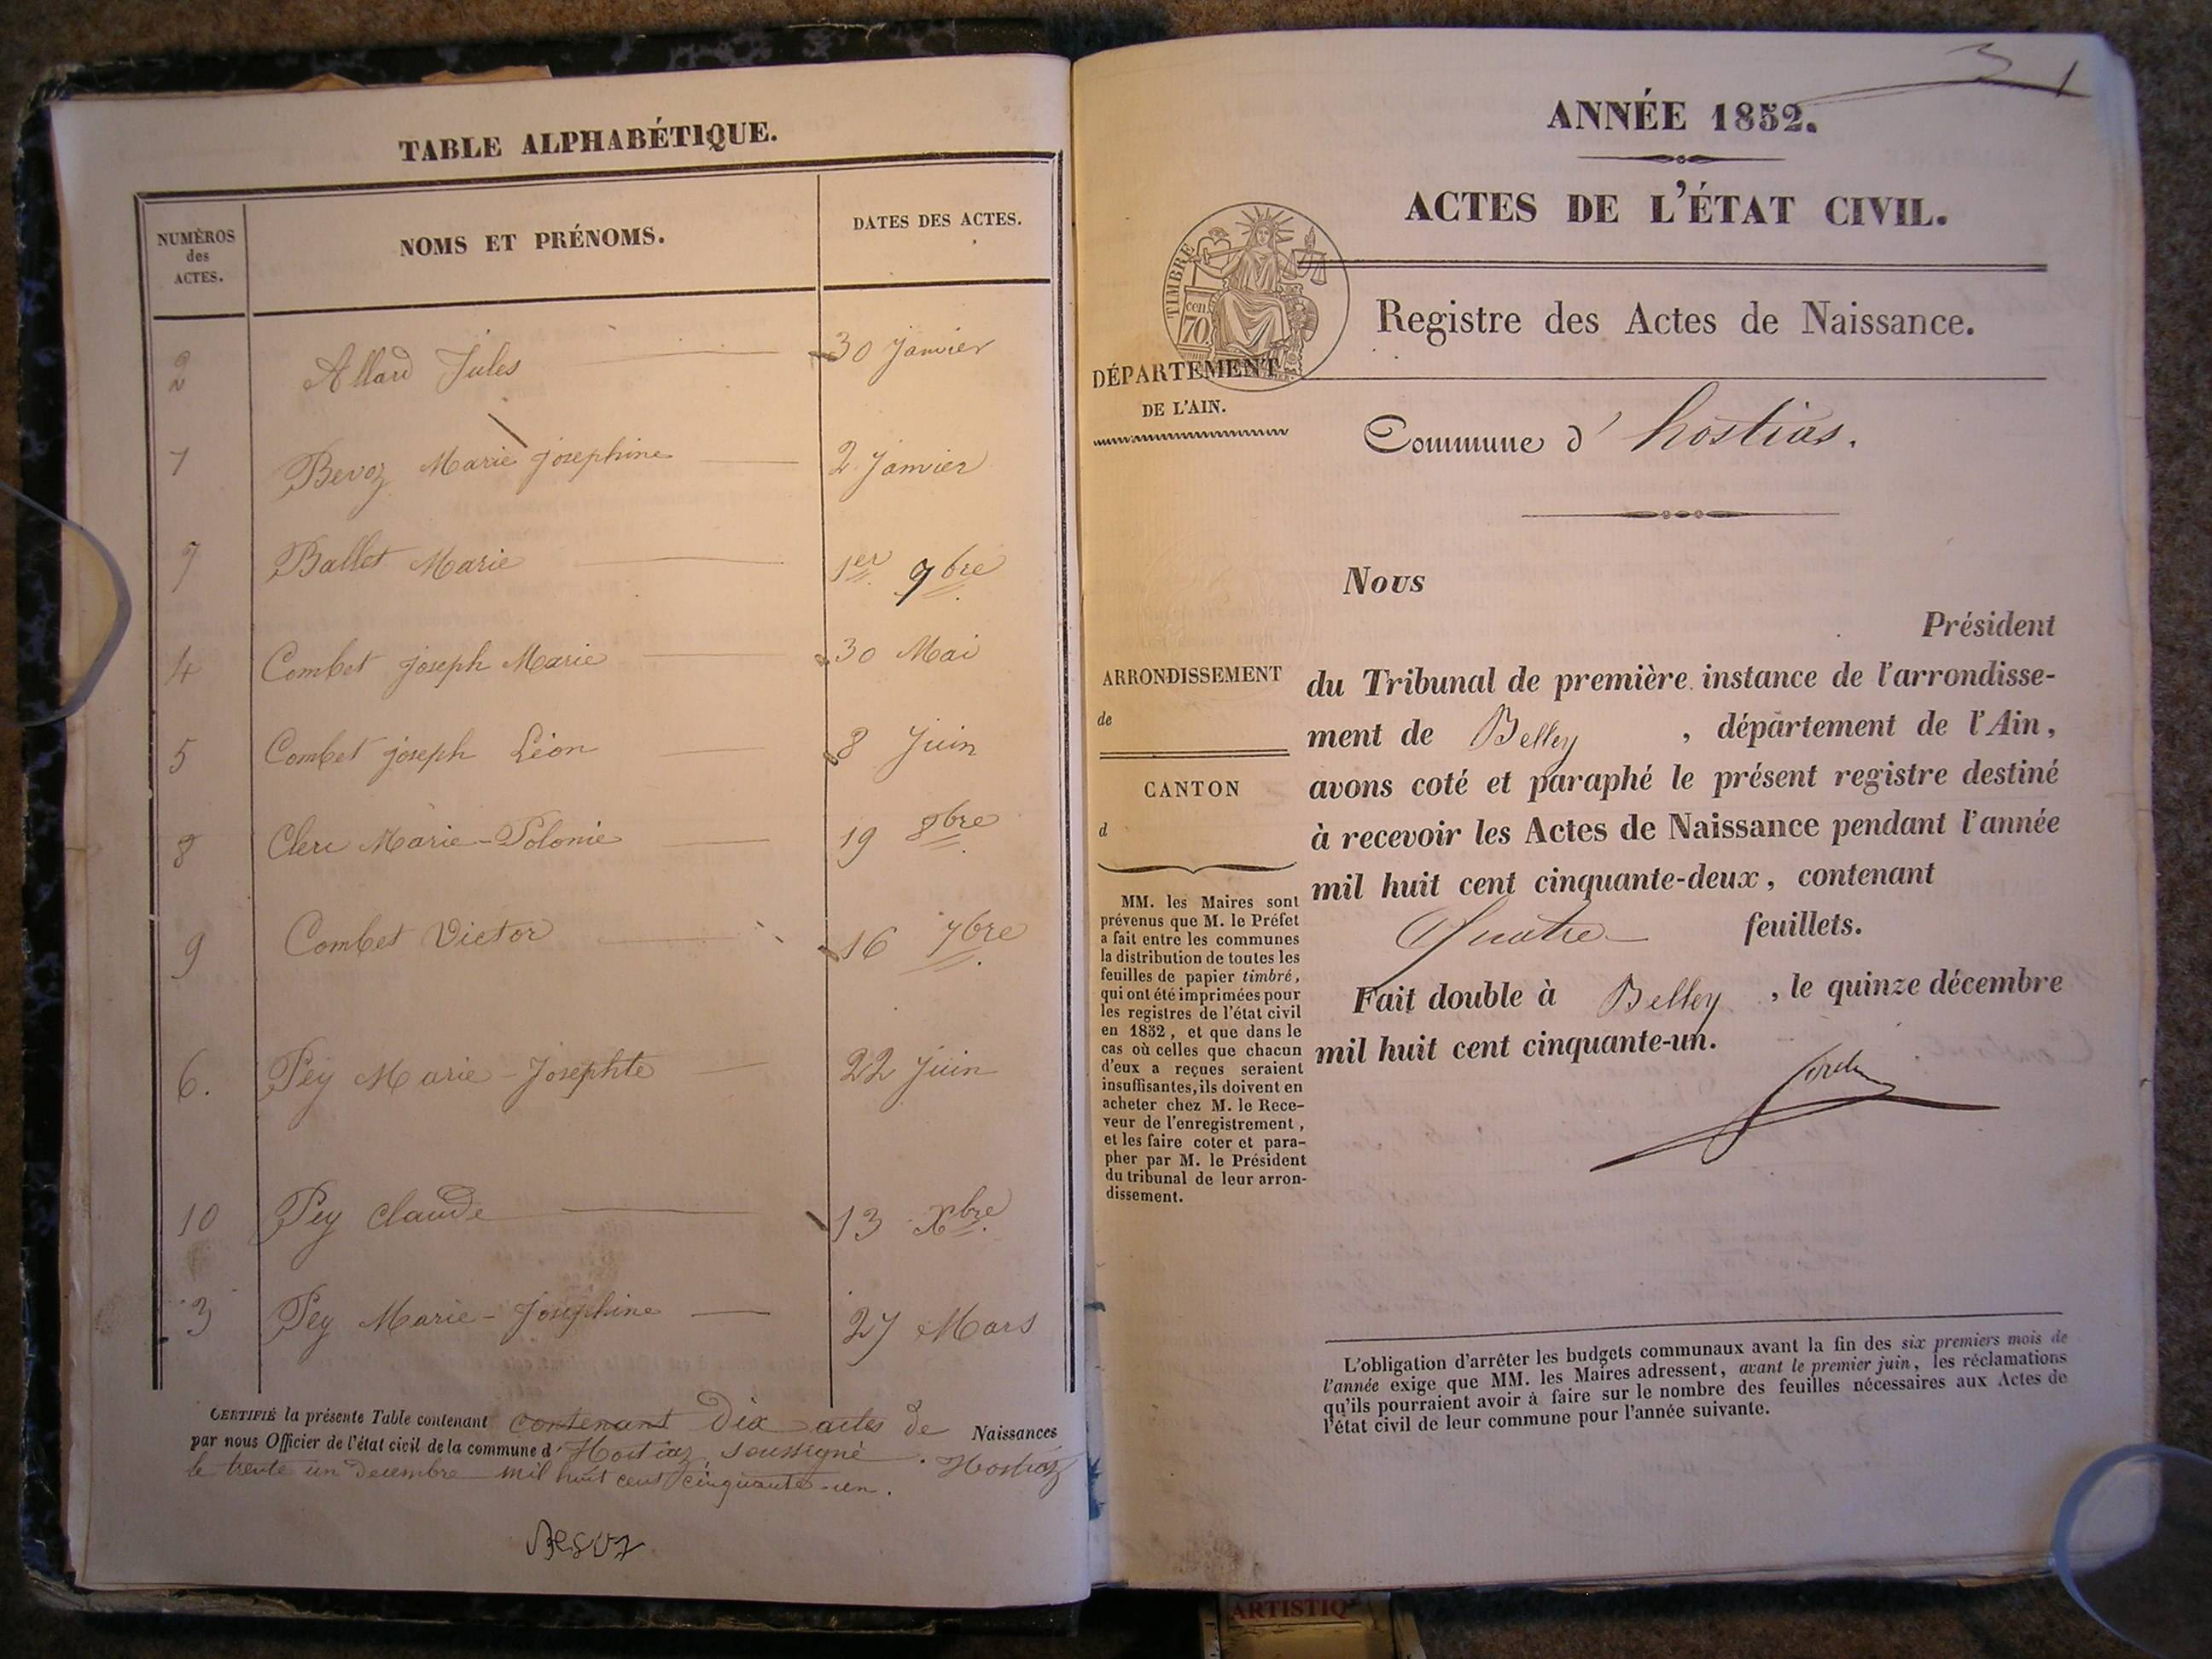 TABLE ALPHABÉTIQUE.
NUMÉROS
des
ACTES.
NOMS ET PRÉNOMS.
DATES DES ACTES.
2 Allard Jules 30 Janvier
1 Bevoz Marie Josephine 2 Janvier
7 Ballet Marie 1er 7bre
4 Combet Joseph Marie 30 Mai
5 Combet Joseph Léon 8 Juin
8 Clerc Marie-Polonie 19 8bre
9 Combet Victor 16 9bre
6. Pey Marie-Josephte 22 Juin
10 Pey Claude 13 Xbre
3 Pey Marie-Josephine 27 Mars
CERTIFIÉ la présente Table contenant contenant Dix actes de Naissances
par nous Officier de l'état civil de la commune d'Hostiaz, soussigné. Hostiaz
le trente un Decembre mil huit cent cinquante-un.
Bevoz
3
1
ANNÉE 1852.
ACTES DE L'ÉTAT CIVIL.
TIMBRE
cen.
70.
Registre des Actes de Naissance.
DÉPARTEMENT
DE L'AIN.
Commune d' hostias.
Nous
Président
ARRONDISSEMENT
de
CANTON
d
du Tribunal de première instance de l'arrondisse-
ment de Belley, département de l'Ain,
avons coté et paraphé le présent registre destiné
à recevoir les Actes de Naissance pendant l'année
mil huit cent cinquante-deux, contenant
Quatre feuillets.
Fait double à Belley, le quinze décembre
mil huit cent cinquante-un.
MM. les Maires sont
prévenus que M. le Préfet
a fait entre les communes
la distribution de toutes les
feuilles de papier timbré,
qui ont été imprimées pour
les registres de l'état civil
en 1852, et que dans le
cas où celles que chacun
d'eux a reçues seraient
insuffisantes, ils doivent en
acheter chez M. le Rece-
veur de l'enregistrement,
et les faire coter et para-
pher par M. le Président
du tribunal de leur arron-
dissement.
L'obligation d'arrêter les budgets communaux avant la fin des six premiers mois de
l'année exige que MM. les Maires adressent, avant le premier juin, les réclamations
qu'ils pourraient avoir à faire sur le nombre des feuilles nécessaires aux Actes de
l'état civil de leur commune pour l'année suivante.
ARTISTIQ